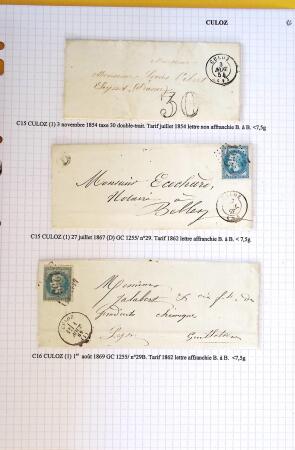 CULOZ
CULOZ
3
NOV.
54
30
C15 CULOZ (1) 3 novembre 1854 taxe 30 double-trait. Tarif juillet 1854 lettre non affranchie B. à B. <7,5g
Monsieur Ecochard,
Notaire
à
Belley
C15 CULOZ (1) 27 juillet 1867 (D) GC 1255/ n°29. Tarif 1862 lettre affranchie B. à B. <7,5g
CULOZ
Messieurs
Jalabert
Produits chimiques
Lyon
Guillotière
C16 CULOZ (1) 1er août 1869 GC 1255/ n°29B. Tarif 1862 lettre affranchie B. à B. <7,5g